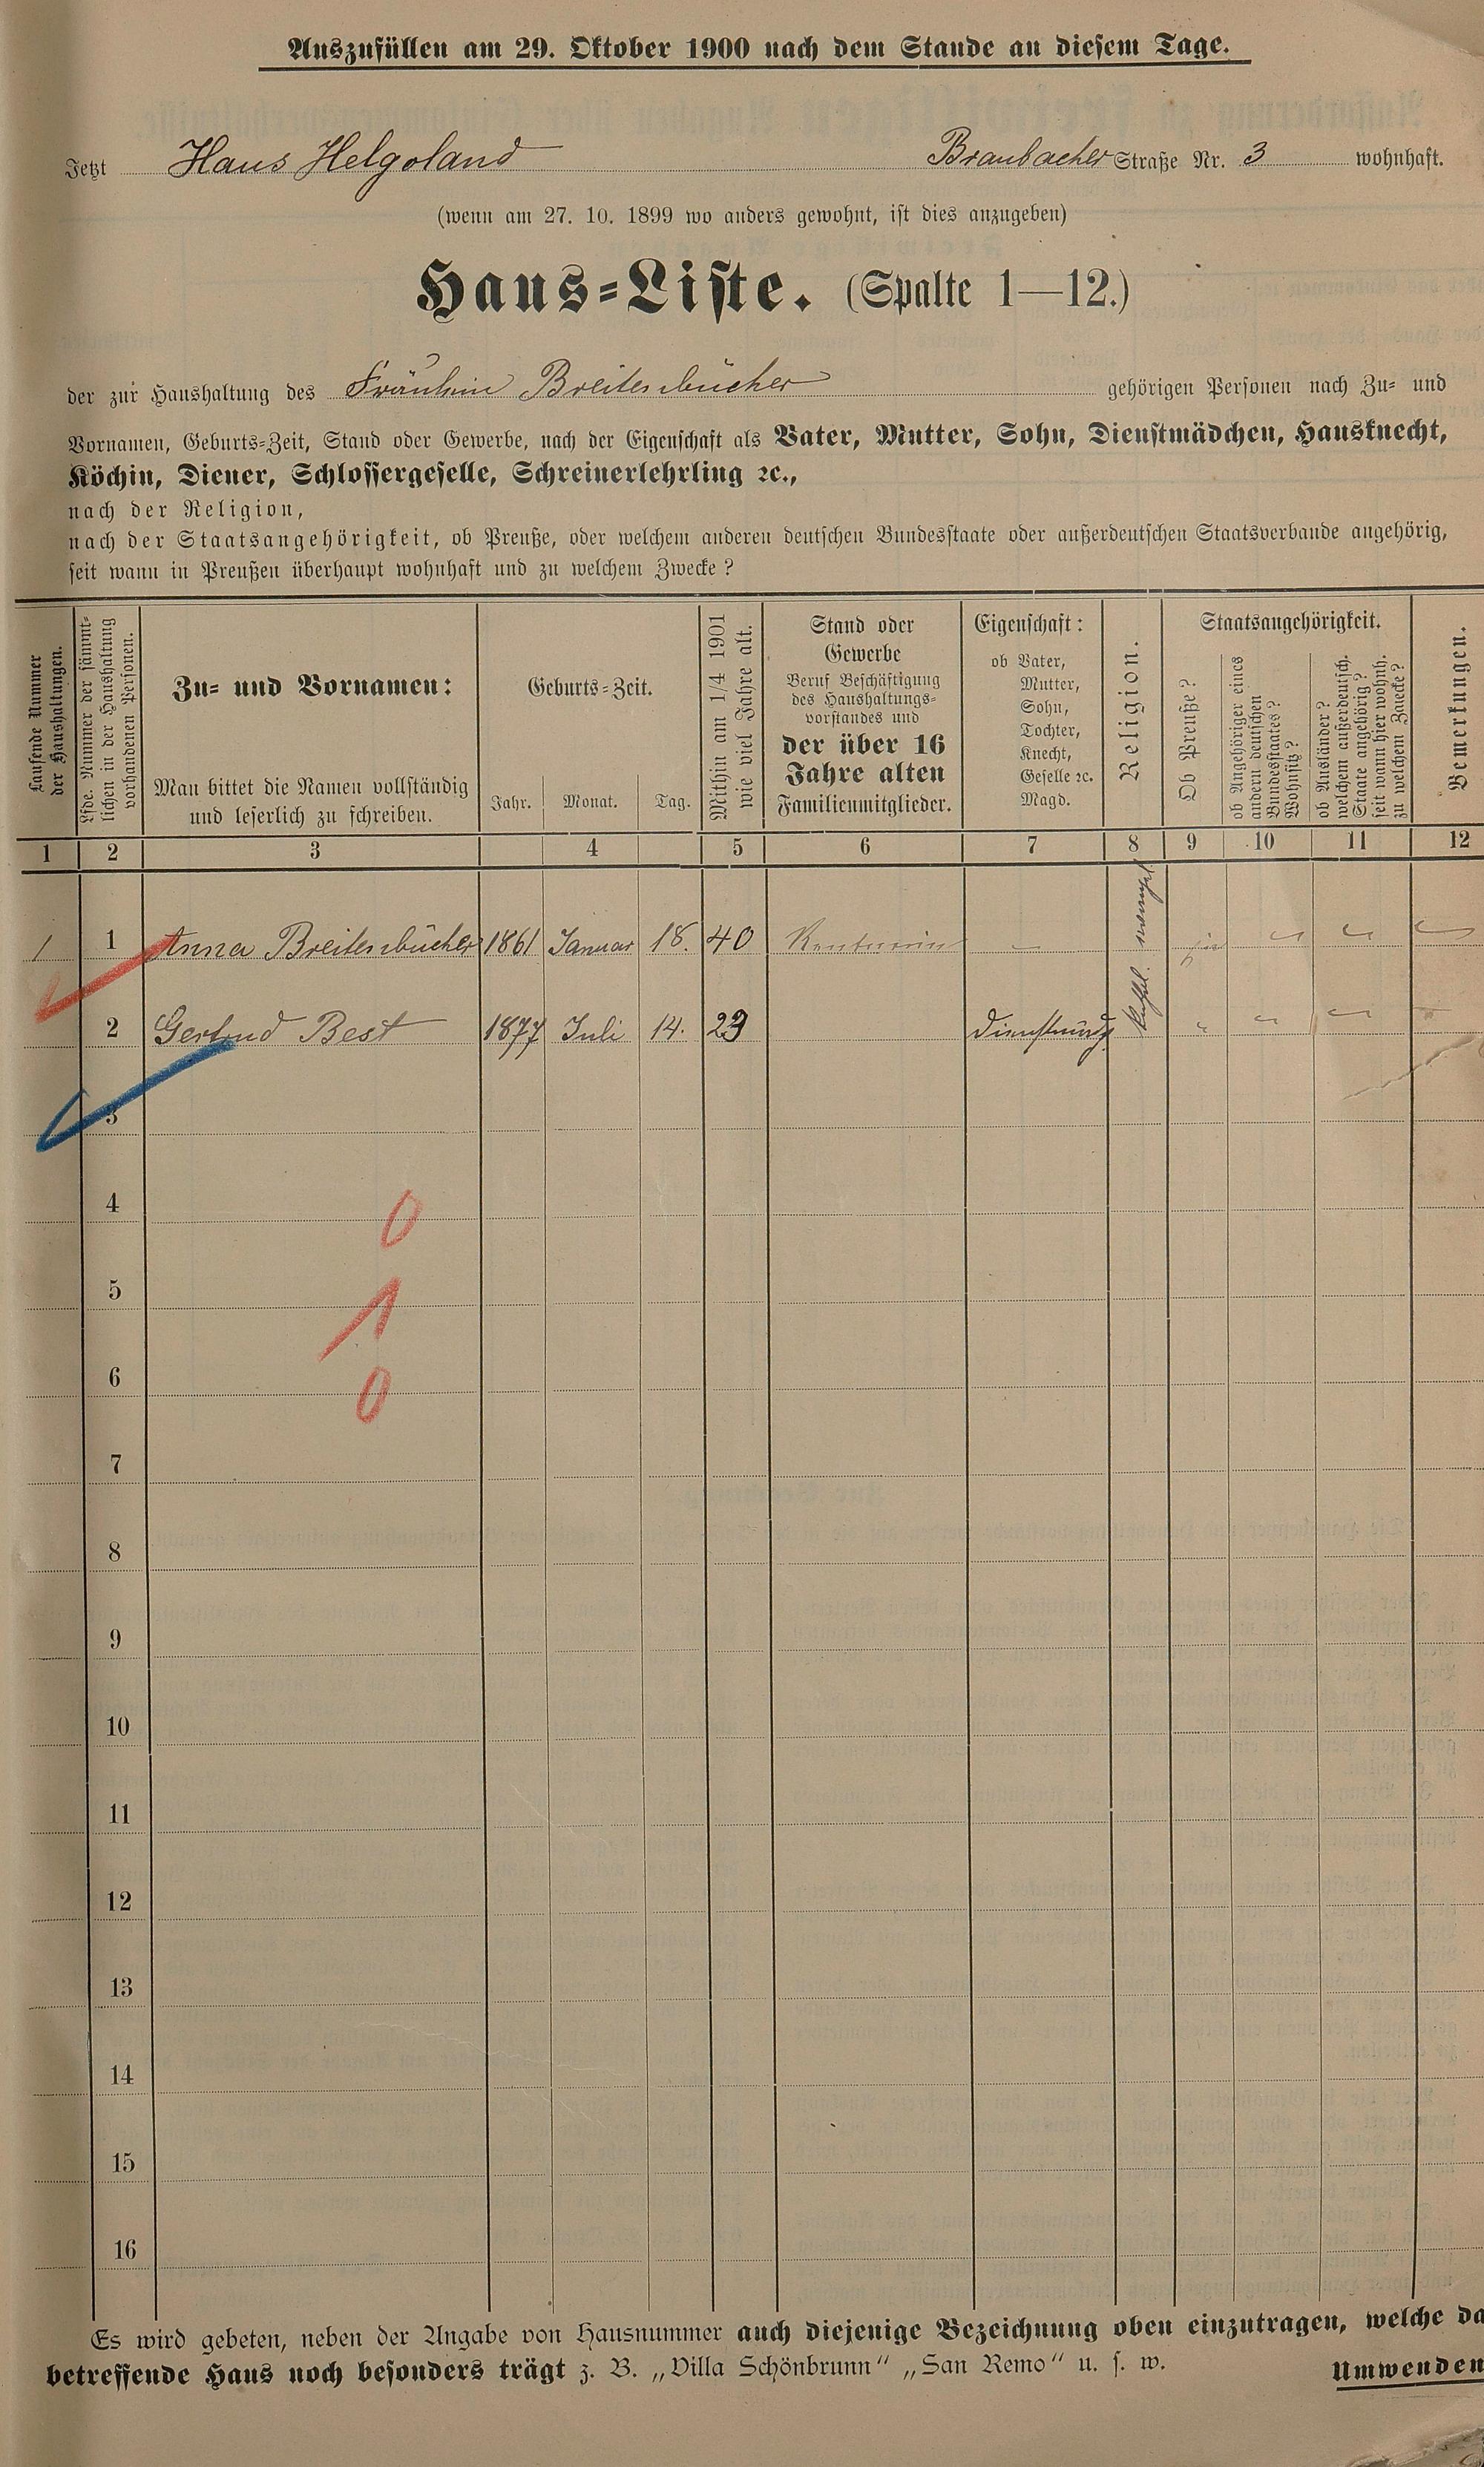 Auszufüllen am 29. Oktober 1900 nach dem Stande an diesem Tage.
Jetzt Haus Helgoland Braubacher Straße Nr. 3 wohnhaft.
(wenn am 27. 10. 1899 wo anders gewohnt, ist dies anzugeben)
Haus-Liste. (Spalte 1—12.)
der zur Haushaltung des Fräulein Breitenbücher gehörigen Personen nach Zu- und
Vornamen, Geburts-Zeit, Stand oder Gewerbe, nach der Eigenschaft als Vater, Mutter, Sohn, Dienstmädchen, Hausknecht,
Köchin, Diener, Schlossergeselle, Schreinerlehrling ꝛc.,
nach der Religion,
nach der Staatsangehörigkeit, ob Preuße, oder welchem anderen deutschen Bundesstaate oder außerdeutschen Staatsverbande angehörig,
seit wann in Preußen überhaupt wohnhaft und zu welchem Zwecke?
Laufende Nummer
der Haushaltungen.
Lfde. Nummer der sämmt-
lichen in der Haushaltung
vorhandenen Personen.
Zu- und Vornamen:
Man bittet die Namen vollständig
und leserlich zu schreiben.
Geburts-Zeit.
Jahr. Monat. Tag.
Mithin am 1/4 1901
wie viel Jahre alt.
Stand oder
Gewerbe
Beruf Beschäftigung
des Haushaltungs-
vorstandes und
der über 16
Jahre alten
Familienmitglieder.
Eigenschaft:
ob Vater,
Mutter,
Sohn,
Tochter,
Knecht,
Geselle ꝛc.
Magd.
Religion.
Staatsangehörigkeit.
Ob Preuße?
ob Angehöriger eines
andern deutschen
Bundesstaates?
Wohnsitz?
ob Ausländer?
welchem außerdeutsch.
Staate angehörig?
seit wann hier wohnh.
zu welchem Zwecke?
Bemerkungen.
1 2 3 4 5 6 7 8 9 10 11 12
1 1 Anna Breitenbücher 1861 Januar 18. 40 Rentnerin —
2 Gertrud Best 1877 Juli 14. 23 Dienstmädg
3
4
0
5
1
6
0
7
8
9
10
11
12
13
14
15
16
Es wird gebeten, neben der Angabe von Hausnummer auch diejenige Bezeichnung oben einzutragen, welche da
betreffende Haus noch besonders trägt z. B. „Villa Schönbrunn“ „San Remo“ u. s. w.
Umwenden